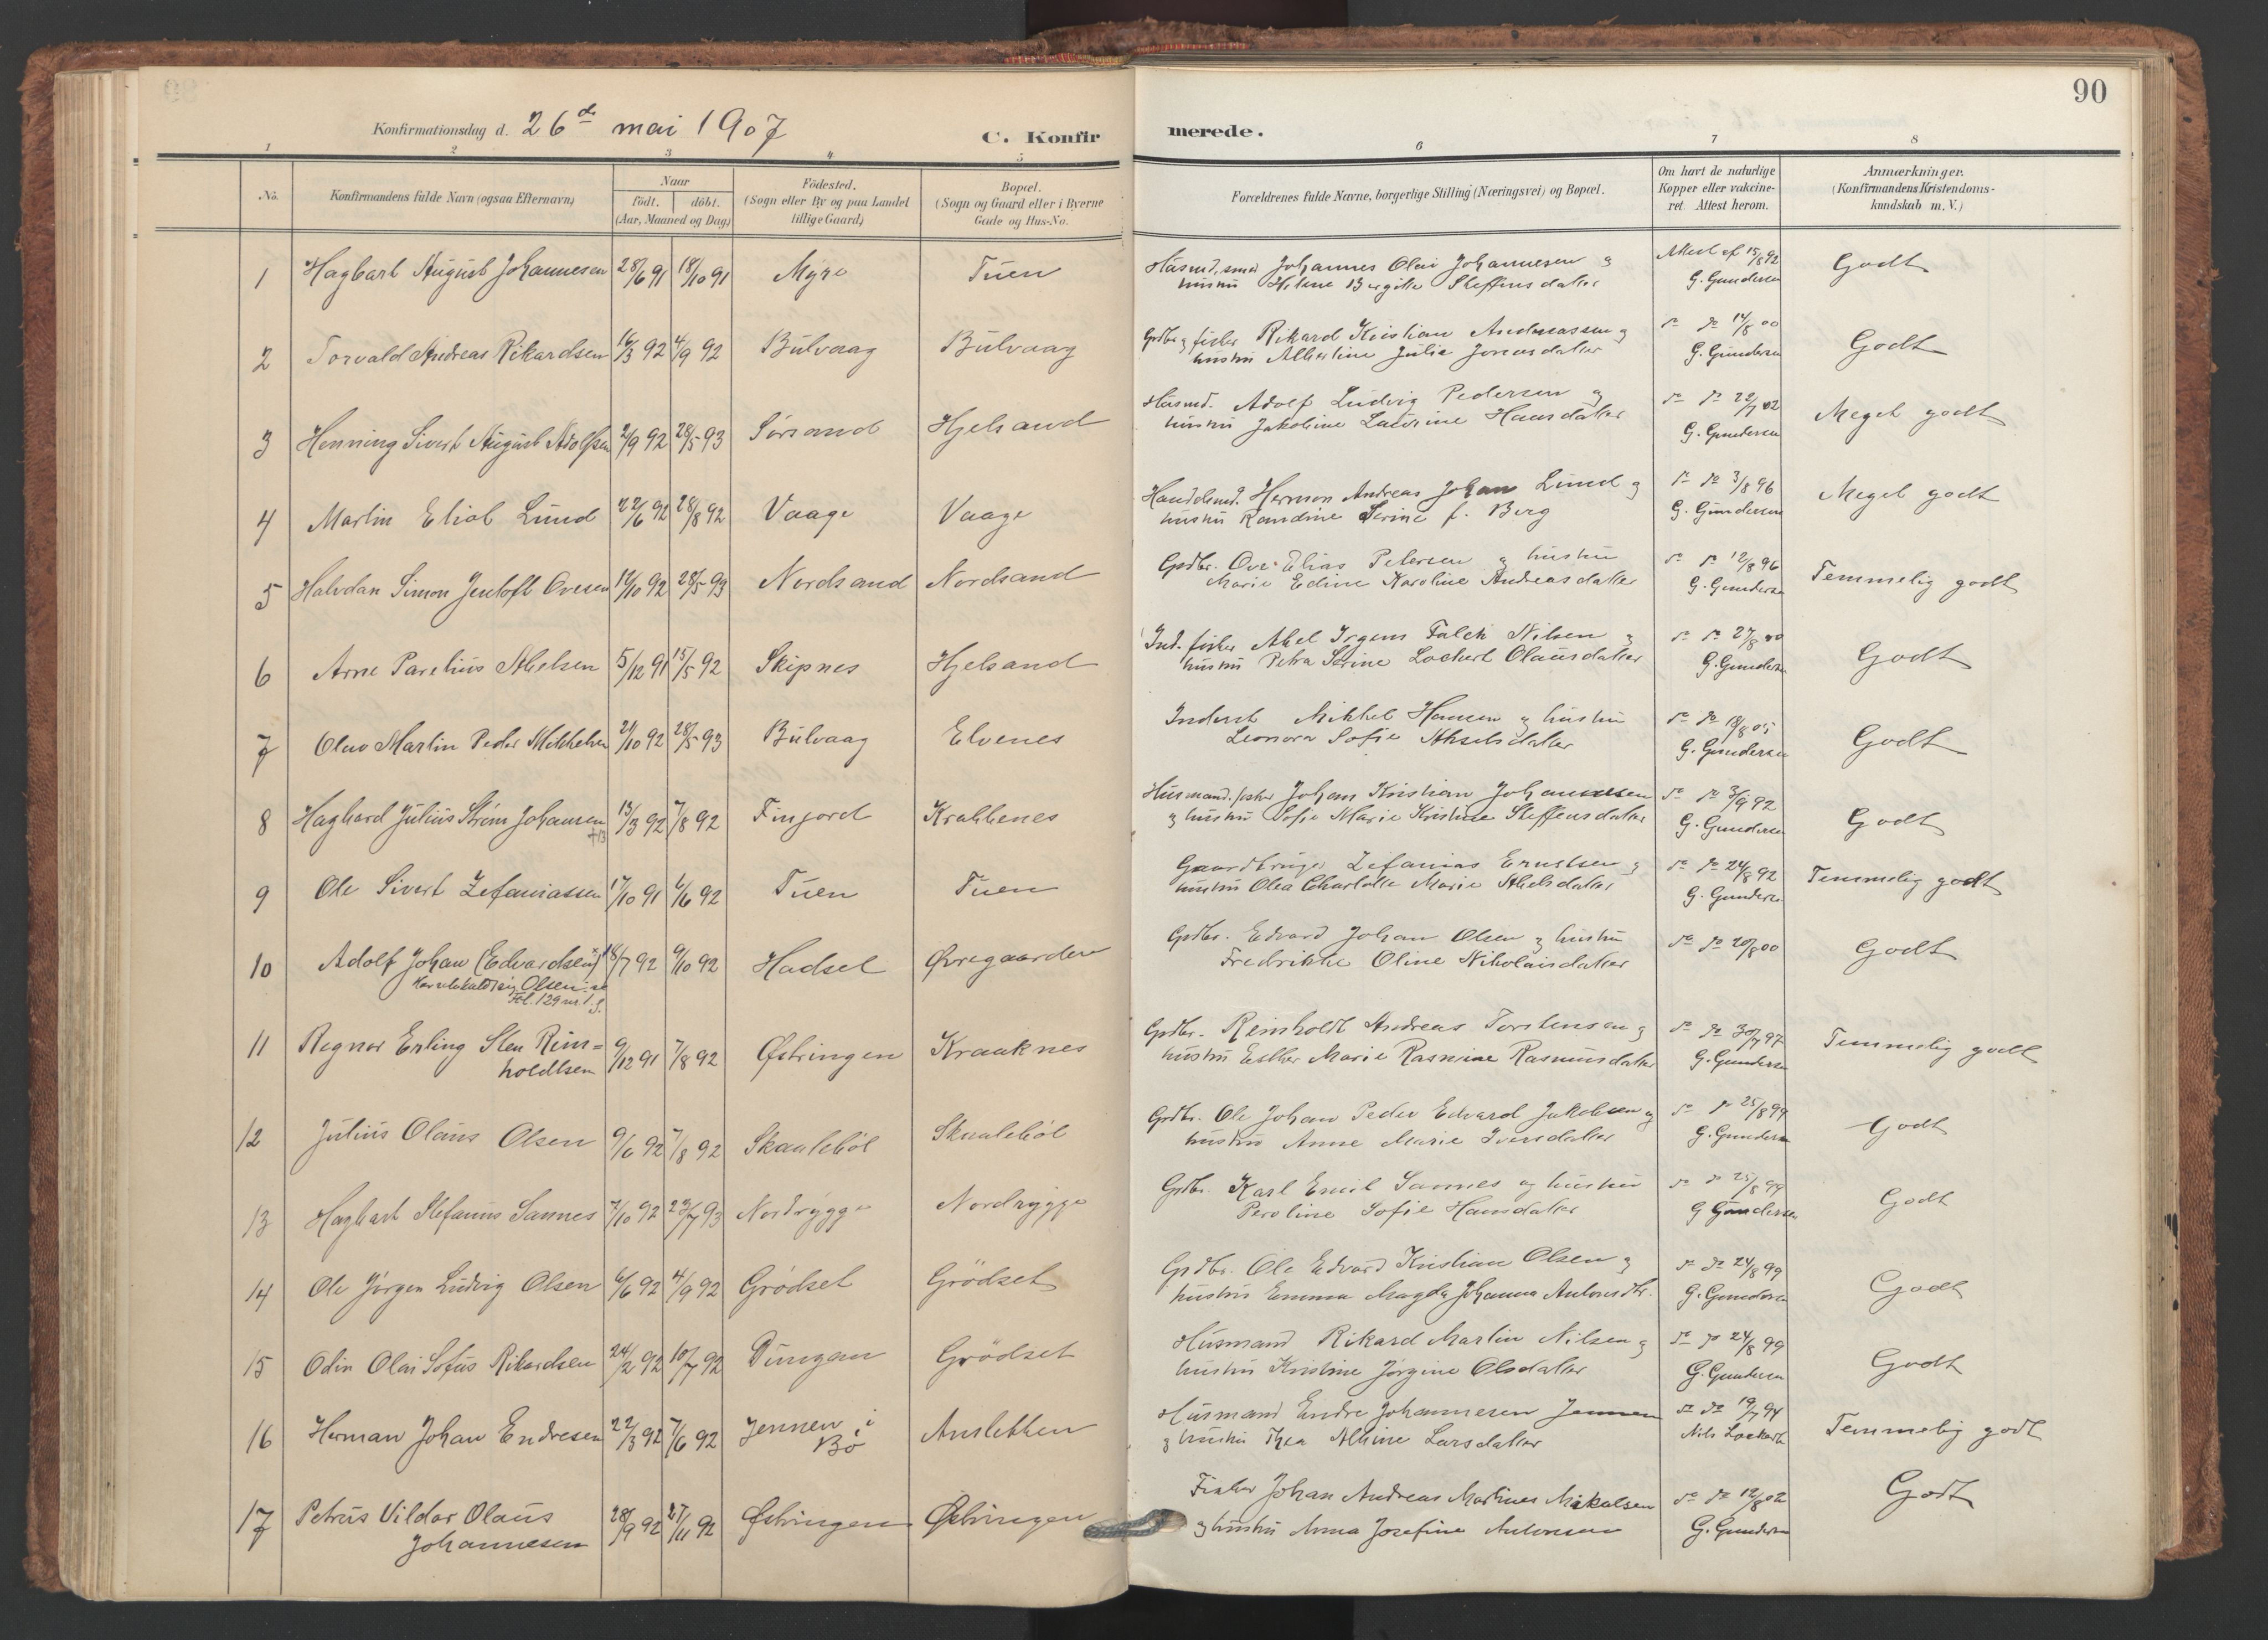 90
Konfirmationsdag d. 26de mai 1907 C. Konfir merede.
1 2 3 4 5 6 7 8
No. Konfirmandens fulde Navn (ogsaa Efternavn) Naar født. døbt. (Aar, Maaned og Dag) Fødested. (Sogn eller By og paa Landet tillige Gaard) Bopæl. (Sogn og Gaard eller i Byerne Gade og Hus-No. Forældrenes fulde Navne, borgerlige Stilling (Næringsvei) og Bopæl. Om havt de naturlige Kopper eller vakcineret. Attest herom. Anmærkninger. (Konfirmandens Kristendomskundskab m. V.)
1 Hagbart August Johannesen 28/6 91 18/10 91 Myre Tuen Johannes Olai Johannesen og Attest af 15/8 92 Godt
hustru Helene Bergitte Steffensdatter G. Gundersen
2 Torvald Andreas Rikardsen 16/3 92 4/9 92 Bulvaag Bulvaag Grdbr. og fisker Rikard Kristian Andreassen og do do 14/8 00 Godt
hustru Albertine Julie Jonasdatter G. Gundersen
3 Henning Sivert August Adolfsen 2/9 92 28/5 93 Sørsand Hjelsand Husmd. Adolf Ludvig Pedersen og do do 22/7 02 Meget godt
hustru Jakobine Laurine Hansdatter G. Gundersen
4 Martin Eliot Lund 22/6 92 28/8 92 Vaage Vaage Handelsmd. Herman Andreas Johan Lund og do do 3/8 96 Meget godt
hustru Randine Serine f. Berg G. Gundersen
5 Halvdan Simon Jentoft Ovesen 12/10 92 28/5 93 Nordsand Nordsand Grdbr. Ove Elias Petersen og hustru do do 12/8 96 Temmelig godt
Marie Edine Karoline Andreasdatter G. Gundersen
6 Arne Parelius Abelsen 5/12 91 15/5 92 Skipnes Hjelsand Ind. fisker Abel Irgens Falch Nilsen og do do 27/8 00 Godt
hustru Petra Serine Lockert Olausdatter G. Gundersen
7 Olav Martin Peder Mikkelsen 21/10 92 28/5 93 Bulvaag Elvenes Inderst Mikkel Hansen og hustru do do 18/8 05 Godt
Leonora Sofie Akselsdatter G. Gundersen
8 Hagbard Julius Strøm Johansen 13/3 92 7/8 92 Finjord Krabbenes Husmand. fisker Johan Kristian Johannesen do do 3/9 92 Godt
og hustru Sofie Marie Kristine Steffensdatter G. Gundersen
9 Ole Sivert Zefaniassen 17/10 91 6/6 92 Tuen Tuen Gaardbruger Zefanias Erntsen og do do 24/8 92 Temmelig godt
hustru Olea Charlotte Marie Abelsdatter G. Gundersen
10 Adolf Johan (Edvardsen) 18/7 92 9/10 92 Hadsel Øvregaarden Grdbr. Edvard Johan Olsen og hustru do do 20/8 00 Godt
Har selv kaldt sig Olsen, se Fredrikke Oline Nikolaisdatter
Fol. 129 nr. 1
11 Regnor Erling Sten Rein= 9/12 91 7/8 92 Østringen Kraaknes Grdbr. Reinholdt Andreas Torstensen og do do 30/7 97 Temmelig godt
holdtsen hustru Esther Marie Rasmine Rasmusdatter G. Gundersen
12 Julius Olaus Olsen 9/6 92 7/8 92 Skaalebøl Skaalebøl Grdbr. Ole Johan Peder Edvard Jakobsen og do do 25/8 99 Godt
hustru Anne Marie Iversdatter G. Gundersen
13 Hagbart Stefanus Sannes 7/10 92 23/7 93 Nordrygge Nordrygge Grdbr. Karl Emil Sannes og hustru do do 25/8 99 Godt
Peroline Sofie Hansdatter G Gundersen
14 Ole Jørgen Ludvig Olsen 6/6 92 4/9 92 Grödset Grödset Grdbr. Ole Edvard Kristian Olsen og do do 24/8 99 Godt
hustru Emma Magda Johanna Antonsdtr. G. Gundersen
15 Odin Olai Sofus Rikardsen 24/2 92 10/7 92 Dungan Grödset Husmand Rikard Martin Nilsen og do do 24/8 99 Godt
hustru Kristine Jørgine Olsdatter G. Gundersen
16 Herman Johan Endresen 22/3 92 7/6 92 Jennen i Bø Ansletten Husmand Endre Johannesen Jennen do do 19/7 94 Temmelig godt
og hustru Thea Albine Larsdatter Nils Lockert
17 Petrus Vildor Olaus 28/9 92 27/11 92 Østringen Østringen Fisker Johan Andreas Martines Mikalsen do do 12/8 02 Godt
Johannesen og hustru Anna Josefine Antonsen G. Gundersen